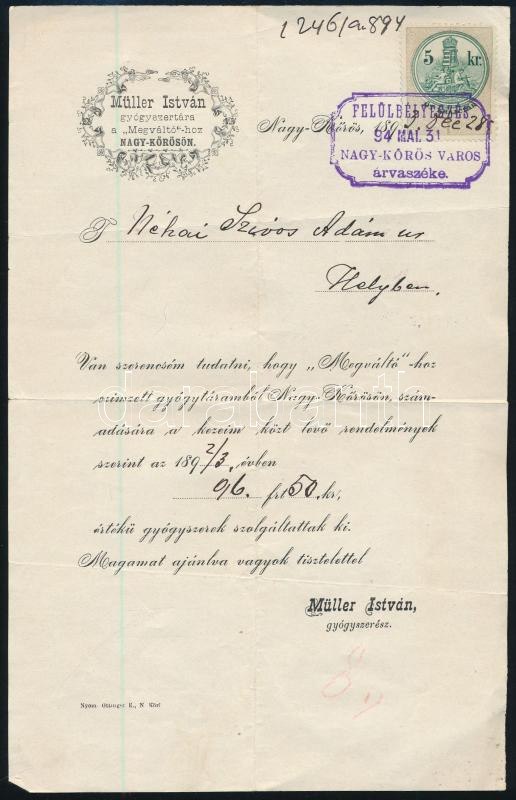 1246/a.894
5 kr.
Müller István
gyógyszertára
a „Megváltó"-hoz
NAGY-KŐRÖSÖN.
Nagy-Kőrös, 189 Dec 28
FELÜLBÉLYEGZÉS
94 MAI. 31
NAGY-KŐRÖS VÁROS
árvaszéke.
T. Néhai Szívós Ádám ur
Helyben.
Van szerencsém tudatni, hogy „Megváltó"-hoz
czimzett gyógytáramból Nagy-Kőrösön, szám-
adására a kezeim közt levő rendelmények
szerint az 189 2/3. évben
96. frt 50. kr.
értékü gyógyszerek szolgáltattak ki.
Magamat ajánlva vagyok tisztelettel
Müller István,
gyógyszerész.
Nyom. Ottinger E., N Kőrö
darabanth